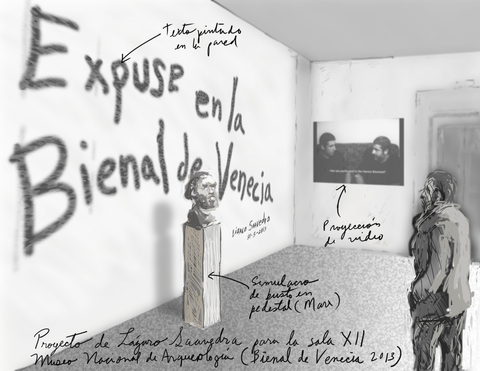 Texto pintado
en la pared
Expuse en la
Bienal de Venecia
Lázaro Saavedra
Proyección
de video
Simulacro
de busto en
pedestal (Marx)
Proyecto de Lázaro Saavedra para la sala XII
Museo Nacional de Arqueología (Bienal de Venecia 2013)